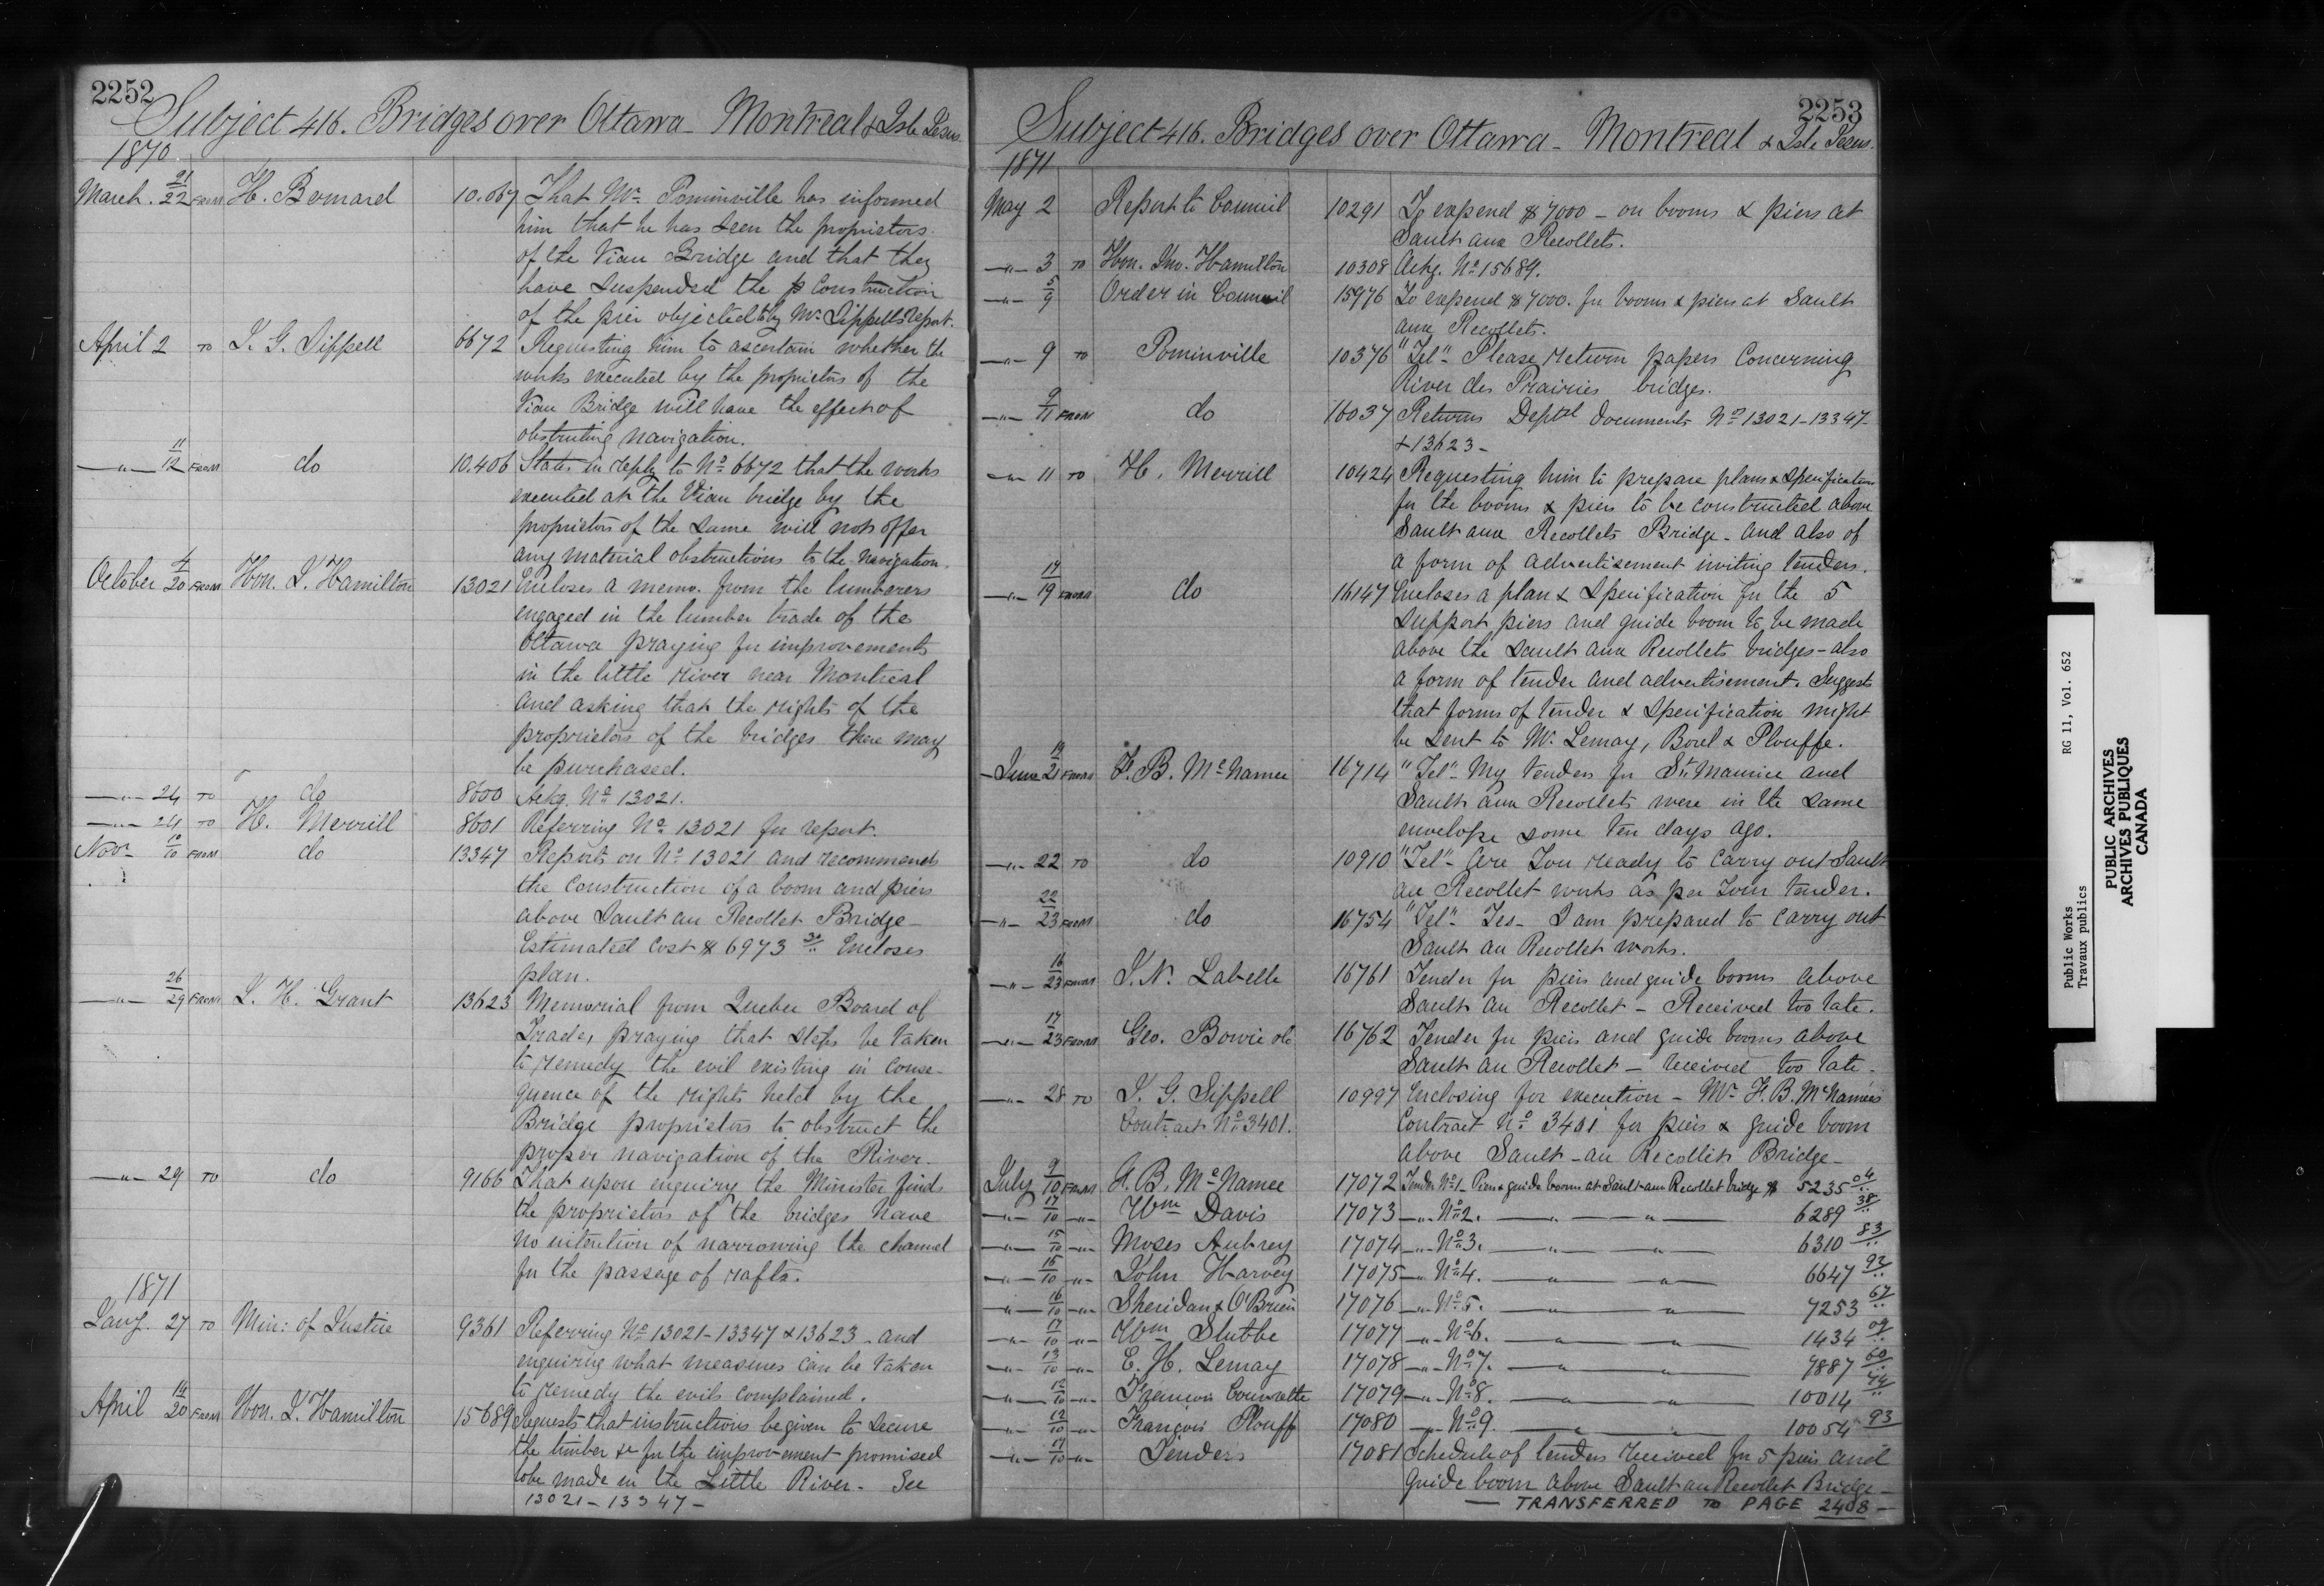 2252
Subject 416. Bridges over Ottawa - Montreal & Isle Jesus.
1870
March. 21/22 FROM H. Bernard 10.067 That Mr. Pominville has informed
him that he has seen the proprietors
of the Viau Bridge and that they
have suspended the p construction
of the pier objected to by Mr. Sippell's report.
April 2 TO J. G. Sippell 6672 Requesting him to ascertain whether the
works executed by the proprietors of the
Viau Bridge will have the effect of
obstructing navigation.
—"— 11/12 FROM do 10.406 States in reply to No. 6672 that the works
executed at the Viau bridge by the
proprietors of the same will not offer
any material obstructions to the navigation.
October 4/20 FROM Hon. J. Hamilton 13021 Encloses a memo. from the lumberers
engaged in the lumber trade of the
Ottawa praying for improvements
in the little river near Montreal
and asking that the rights of the
proprietors of the bridges there may
be purchased.
—"— 24 TO do 8600 Ackg. No. 13021.
—"— 24 TO H. Merrill 8601 Referring No. 13021 for report.
Novr. 10/10 FROM do 13347 Reports on No. 13021 and recommends
the construction of a boom and piers
above Sault au Recollet Bridge -
Estimated cost $6973 30/.. Encloses
plan.
—"— 26/29 FROM J. H. Grant 13623 Memorial from Quebec Board of
Trade, praying that steps be taken
to remedy the evil existing in conse-
quence of the rights held by the
Bridge proprietors to obstruct the
proper navigation of the River.
—"— 29 TO do 9166 That upon enquiry the Minister finds
the proprietors of the bridges have
no intention of narrowing the channel
for the passage of rafts.
1871
Jany. 27 TO Min: of Justice 9361 Referring No. 13021-13347 & 13623 - and
enquiring what measures can be taken
to remedy the evils complained.
April 14/20 FROM Hon. J. Hamilton 15689 Requests that instructions be given to secure
the timber &c for the improvement promised
to be made in the Little River. See
13021-13347-
2253
Subject 416. Bridges over Ottawa - Montreal & Isle Jesus.
1871
May 2 Report to Council 10291 To expend $7000 - on booms & piers at
Sault aux Recollets.
—"— 3 TO Hon. Jno. Hamilton 10308 Ackg. No. 15689.
—"— 5/9 Order in Council 15976 To expend $7000. for booms & piers at Sault
aux Recollets.
—"— 9 TO Pominville 10376 "Tel" - Please return papers concerning
River des Prairies bridges.
—"— 9/11 FROM do 16037 Returns Deptal documents No. 13021-13347-
& 13623-
—"— 11 TO H. Merrill 10424 Requesting him to prepare plans & specification
for the booms & piers to be constructed above
Sault aux Recollets Bridge - and also of
a form of advertisement inviting tenders.
—"— 17/19 FROM do 16147 Encloses a plan & specification for the 5
support piers and guide boom to be made
above the Sault aux Recollets bridges - also
a form of tender and advertisement. Suggests
that forms of tender & specification might
be sent to Mr. Lemay, Borel & Plouffe.
June 19/21 FROM F. B. McNamee 16714 "Tel" - My tenders for St. Maurice and
Sault aux Recollets were in the same
envelope some ten days ago.
—"— 22 TO do 10910 "Tel" - Are you ready to carry out Sault
au Recollet works as per your tender.
—"— 22/23 FROM do 16754 "Tel" - Yes - I am prepared to carry out
Sault au Recollet works.
—"— 16/23 FROM J. N. Labelle 16761 Tender for piers and guide booms above
Sault au Recollet - Received too late.
—"— 17/23 FROM Geo. Bowie 16762 Tender for piers and guide booms above
Sault au Recollet - received too late.
—"— 28 TO J. G. Sippell 10997 Enclosing for execution - Mr. F. B. McNamee's
Contract No. 3401. Contract No. 3401 for piers & guide boom
above Sault-au Recollet Bridge-
July 9/10 FROM F. B. McNamee 17072 Tender No. 1 - Piers & guide booms at Sault aux Recollet bridge $ 5235 04/..
—"— 17/10 —"— Wm Davis 17073 —"— No. 2. —"—"— 6289 38/..
—"— 15/10 —"— Moses Aubrey 17074 —"— No. 3. —"—"— 6310 83/..
—"— 15/10 —"— John Harvey 17075 —"— No. 4. —"—"— 6647 92/..
—"— 16/10 —"— Sheridan & O'Brien 17076 —"— No. 5. —"—"— 7253 67/..
—"— 17/10 —"— Wm Stubbe 17077 —"— No. 6. —"—"— 1434 09/..
—"— 13/10 —"— E. H. Lemay 17078 —"— No. 7. —"—"— 7887 60/..
—"— 12/10 —"— François 17079 —"— No. 8. —"—"— 10014 44/..
—"— 12/10 —"— François Plouff 17080 —"— No. 9. —"—"— 10054 93
—"— 17/10 —"— Tenders 17081 Schedule of tenders received for 5 piers and
guide boom above Sault au Recollet Bridge -
— TRANSFERRED TO PAGE 2408 —
Public Works RG 11, Vol. 652
Travaux publics
PUBLIC ARCHIVES
ARCHIVES PUBLIQUES
CANADA